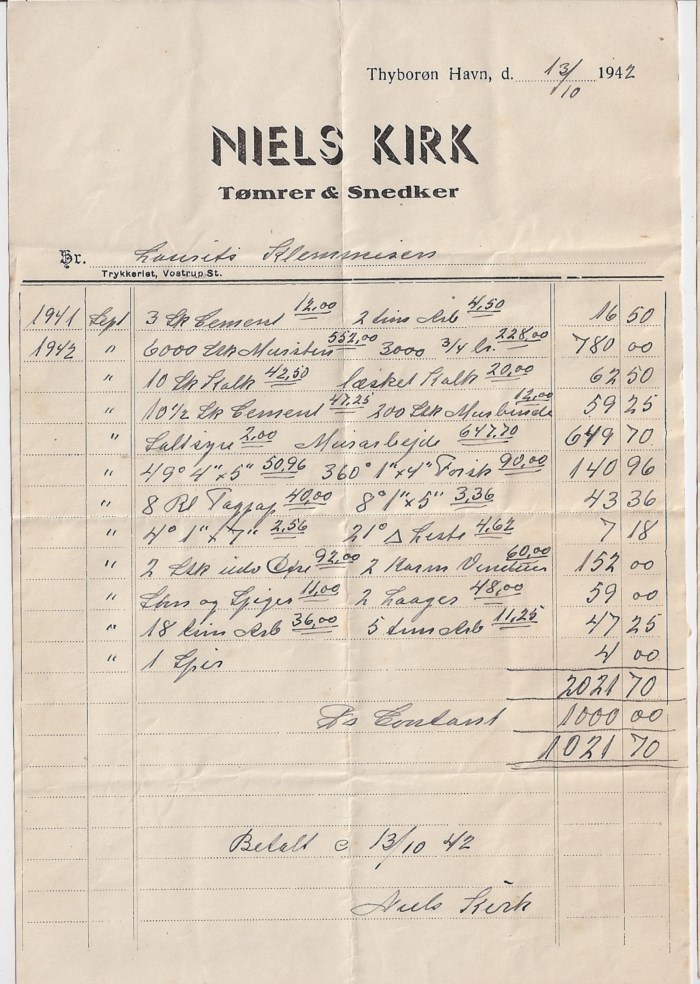 Thyborøn Havn, d. 13/10 1942
NIELS KIRK
Tømrer & Snedker
Hr. Laurits Klemmisen
Trykkeriet, Vostrup St.
1941 Sept 3 Sk Cement 12,00 2 tim Arb 4,50 16 50
1942 " 6000 Stk Mursten 552,00 3000 3/4 228,00 780 00
" 10 Sk Kalk 42,50 læsket Kalk 20,00 62 50
" 10½ Sk Cement 47,25 200 Stk Murbinde 12,00 59 25
" Saltsyre 2,00 Murarbejde 647,70 649 70
" 49° 4"x5" 50,96 360° 1"x4" Forsk 90,00 140 96
" 8 Rl Tagpap 40,00 8° 1"x5" 3,36 43 36
" 4° 1"x7" 2,56 21° △ Liste 4,62 7 18
" 2 Stk udv Døre 92,00 2 Karm Vinduer 60,00 152 00
" Søm og Spiger 11,00 2 Laager 48,00 59 00
" 18 tim Arb 36,00 5 tim Arb 11,25 47 25
" 1 Spir 4 00
2021 70
Contant 1000 00
1021 70
Betalt d 13/10 42
Niels Kirk